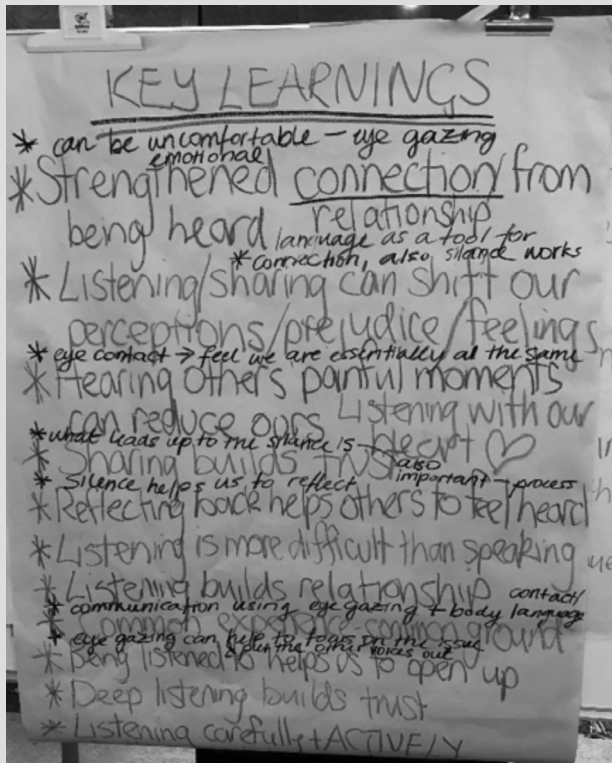 KEY LEARNINGS
* can be uncomfortable – eye gazing
emotional
* Strengthened connection/from
being heard relationship
language as a tool for
* connection, also, silance works
* Listening/sharing can shift our
perceptions/prejudice/feelings
* eye contact → feel we are essentially all the same
* Hearing others painful moments
can reduce ours Listening with our
heart ♡
* what leads up to the silance is
* Sharing builds trust also
important – process
* Silence helps us to reflect
* Reflecting back helps others to feel heard
* Listening is more difficult than speaking
* Listening builds relationship contact/
* communication using eye gazing + body language
* Common experience common ground
* eye gazing can help to focus on the issue
& put the other voices out
* Being listened to helps us to open up
* Deep listening builds trust
* Listening carefully + ACTIVELY